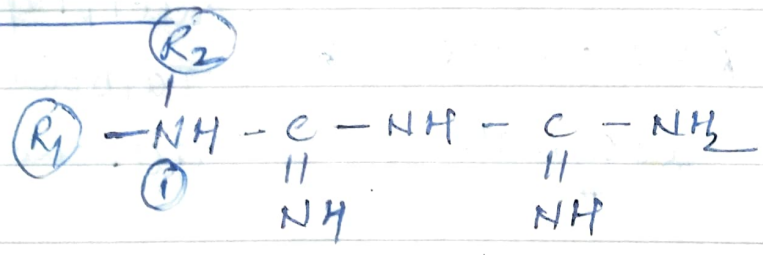 R2
R1 - NH - C - NH - C - NH2
1 || ||
NH NH